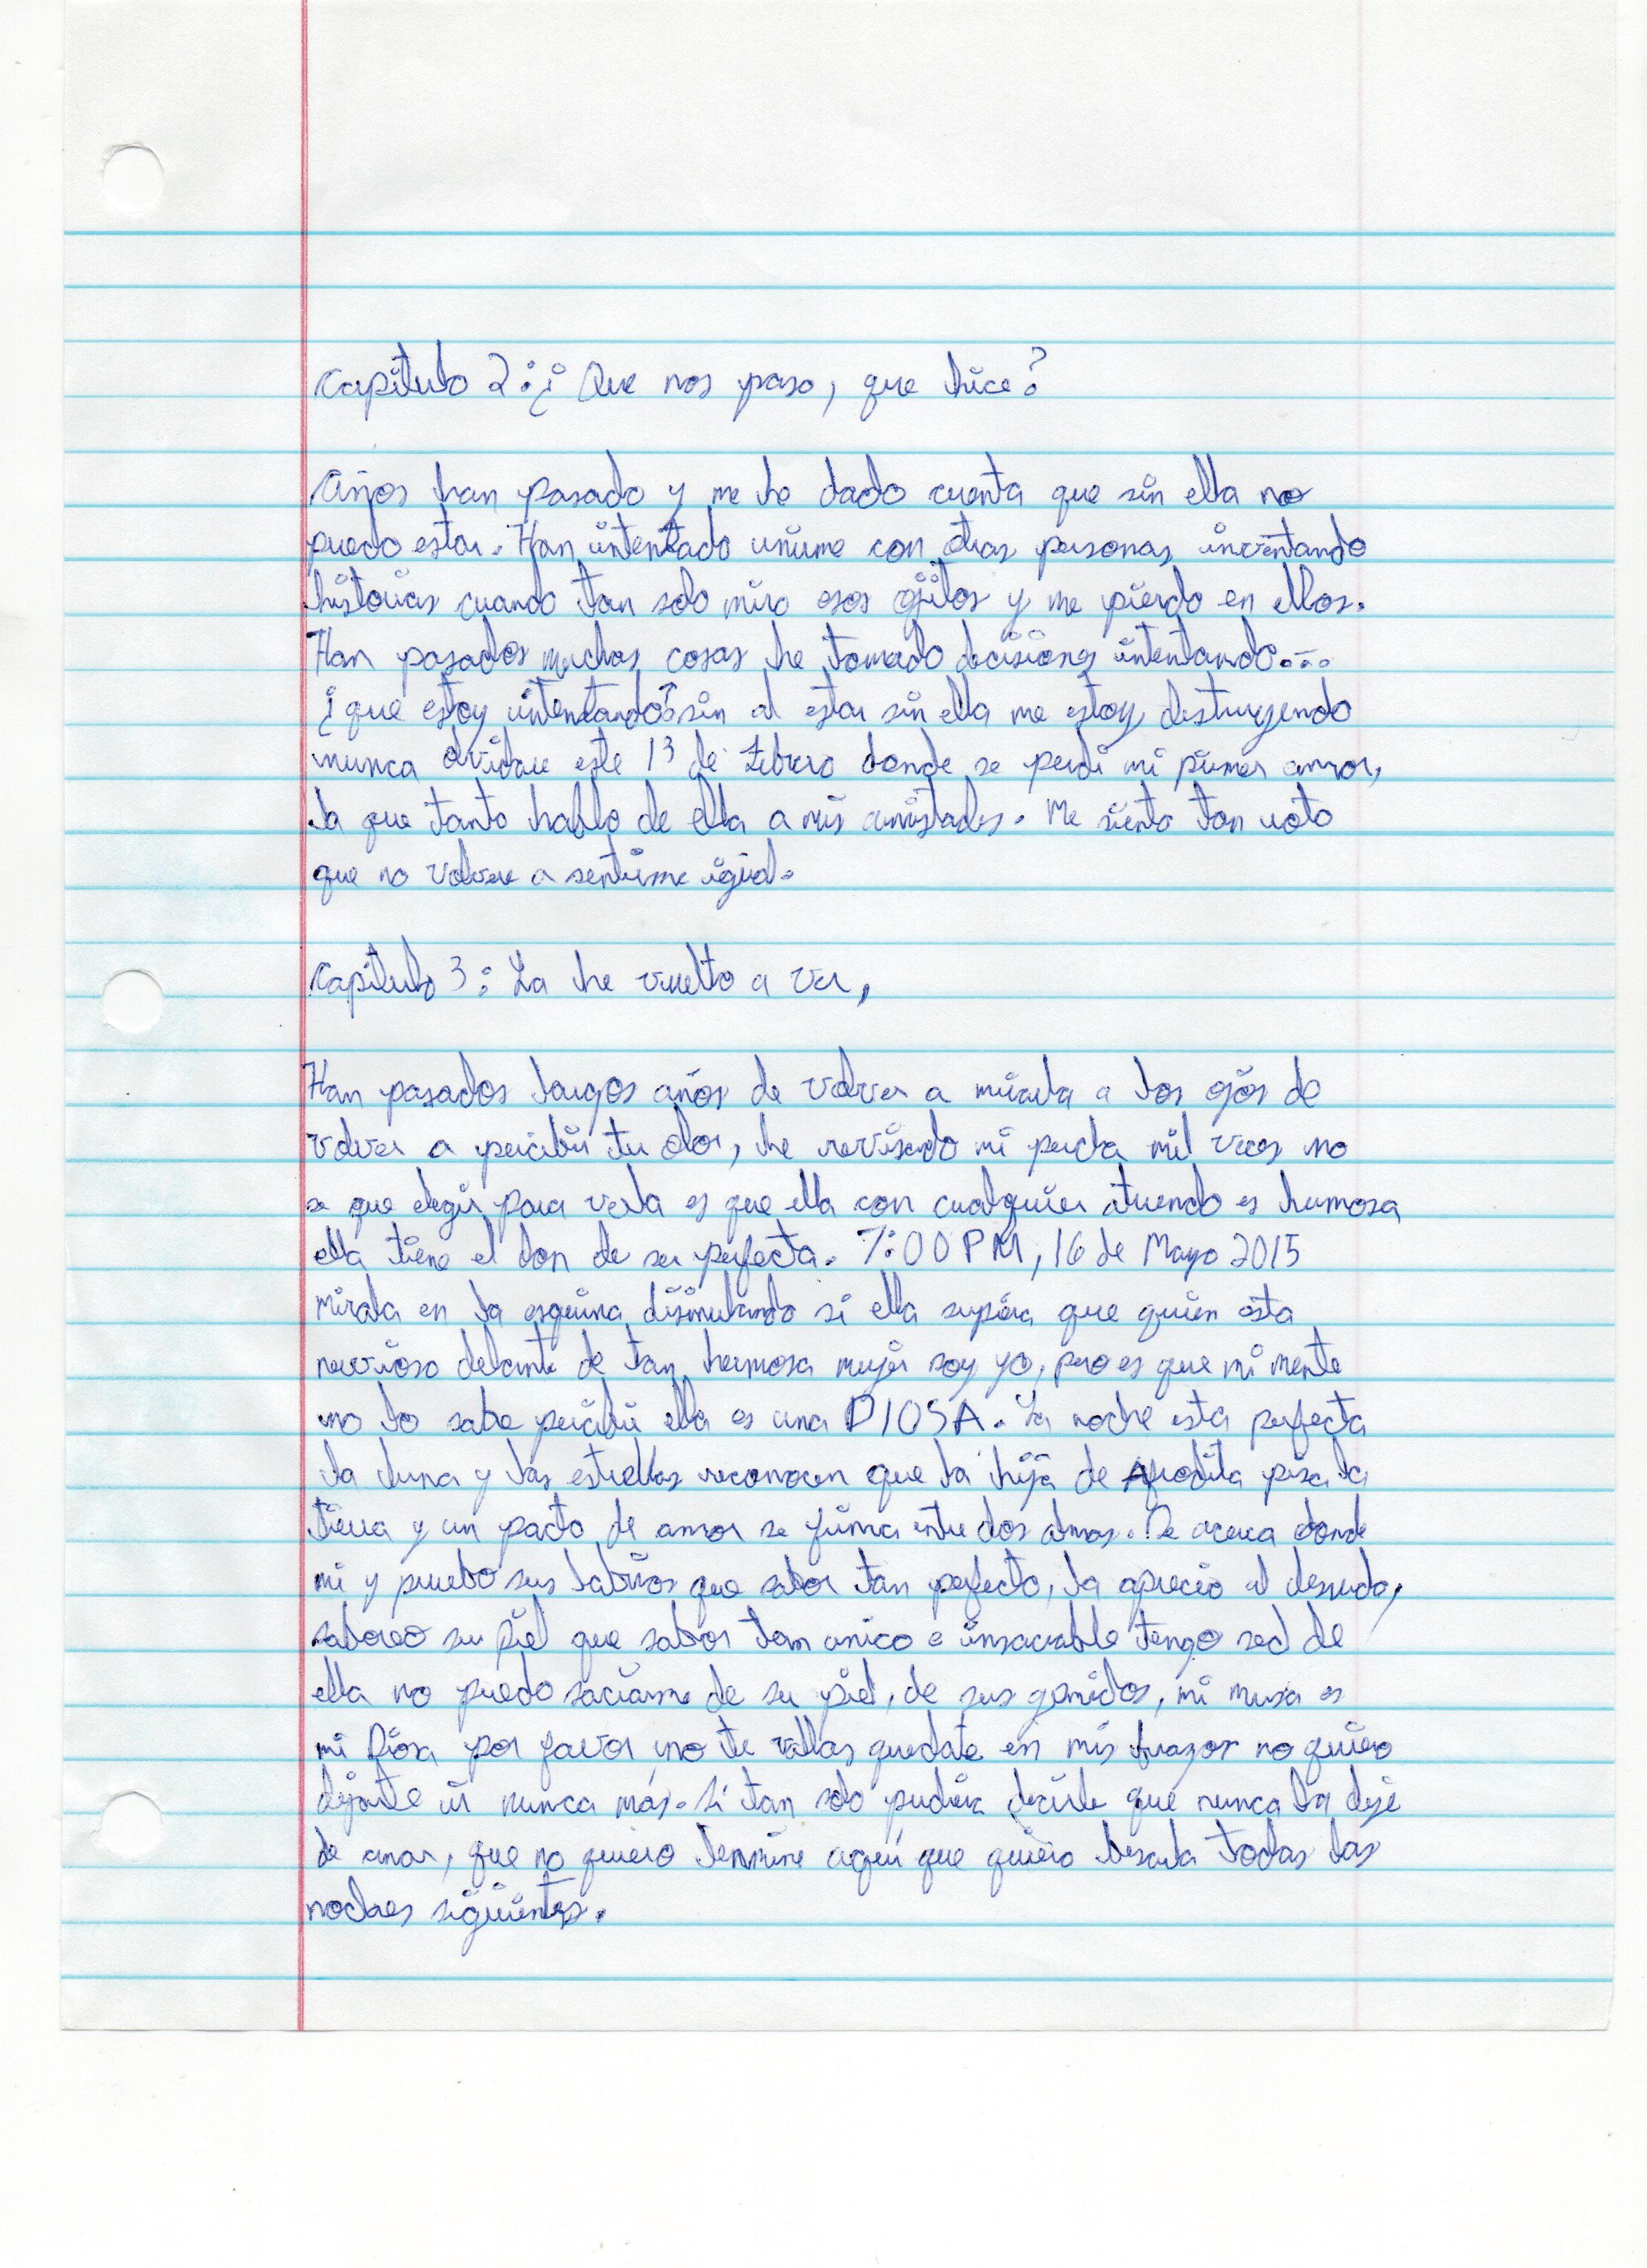 Capitulo 2: ¿Que nos paso, que hice?
Años han pasado y me he dado cuenta que sin ella no
puedo estar. Han intentado unirme con otras personas, inventando
historias cuando tan solo miro esos ojitos y me pierdo en ellos.
Han pasados muchas cosas he tomado decisiones intentando...
¿que estoy intentando? sin al estar sin ella me estoy destruyendo
nunca olvidare este 13 de Febrero donde se perdi mi primer amor,
la que tanto hablo de ella a mis amistades. Me siento tan roto
que no volvere a sentirme igual.
Capitulo 3: La he vuelto a ver,
Han pasados largos años de volver a mirarla a los ojos de
volver a percibir tu olor, he revisado mi percha mil veces no
se que elegir para verla es que ella con cualquier atuendo es hermosa
ella tiene el don de ser perfecta. 7:00 PM, 16 de Mayo 2015
mirala en la esquina disimulando si ella supiera que quien esta
nervioso delante de tan hermosa mujer soy yo, pero es que mi mente
no lo sabe percibir ella es una DIOSA. La noche esta perfecta
la luna y las estrellas reconocen que la hija de Afrodita pisa la
tierra y un pacto de amor se firma entre dos almas. Se acerca donde
mi y pruebo sus labios que sabor tan perfecto, la aprecio al desnudo,
saboreo su piel que sabor tan unico e insaciable tengo sed de
ella no puedo saciarme de su piel, de sus gemidos, mi musa es
mi Diosa por favor no te vallas quedate en mis brazos no quiero
dejarte ir nunca más. Si tan solo pudiera decirle que nunca la deje
de amar, que no quiero termine aquí que quiero besarla todas las
noches siguientes.